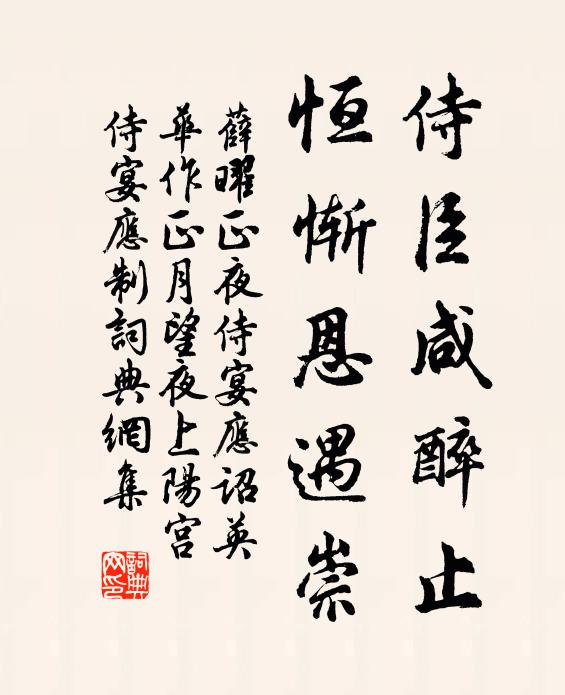 侍臣咸醉止
恒慚恩遇崇
薛曜正夜侍宴應詔英
華作正月望夜上陽宮
侍宴應制詞典網集
詞典网印